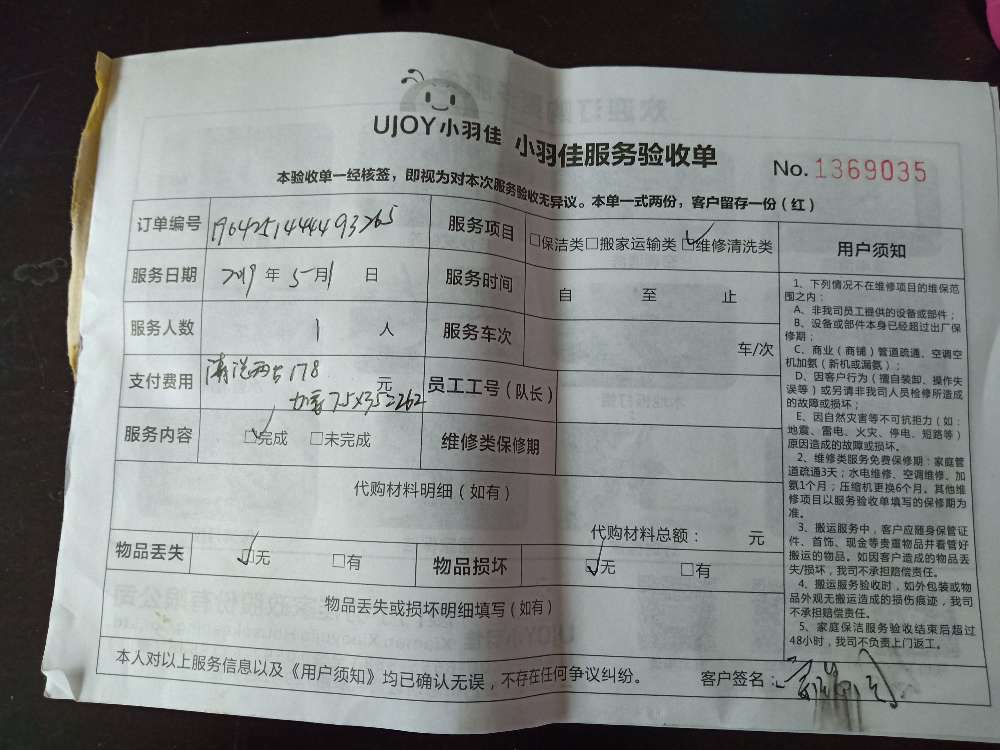 UJOY小羽佳 小羽佳服务验收单 No.1369035
本验收单一经核签，即视为对本次服务验收无异议。本单一式两份，客户留存一份（红）
订单编号 服务项目 □保洁类□搬家运输类☑维修清洗类
服务日期 2019年 5月1 日 服务时间 自 至 止
服务人数 1 人 服务车次 车/次
支付费用 清洗两台178 元 员工工号（队长）
加雪75×3.5=262
服务内容 ☑完成 □未完成 维修类保修期
代购材料明细（如有）
代购材料总额： 元
物品丢失 ☑无 □有 物品损坏 ☑无 □有
物品丢失或损坏明细填写（如有）
本人对以上服务信息以及《用户须知》均已确认无误，不存在任何争议纠纷。 客户签名：
用户须知
1、下列情况不在维修项目的维保范
围之内：
A、非我司员工提供的设备或部件；
B、设备或部件本身已经超过出厂保
修期；
C、商业（商铺）管道疏通、空调空
机加氨（新机或漏氨）；
D、因客户行为（擅自装卸、操作失
误等）或另请非我司人员检修所造成
的故障或损坏；
E、因自然灾害等不可抗拒力（如：
地震、雷电、火灾、停电、短路等）
原因造成的故障或损坏。
2、维修类服务免费保修期：家庭管
道疏通3天；水电维修、空调维修、加
氨1个月；压缩机更换6个月。其他维
修项目以服务验收单填写的保修期为
准。
3、搬运服务中，客户应随身保管证
件、首饰、现金等贵重物品并看管好
搬运的物品。如因客户造成的物品丢
失/损坏，我司不承担赔偿责任。
4、搬运服务验收时，如外包装或物
品外观无搬运造成的损伤痕迹，我司
不承担赔偿责任。
5、家庭保洁服务验收结束后超过
48小时，我司不负责上门返工。